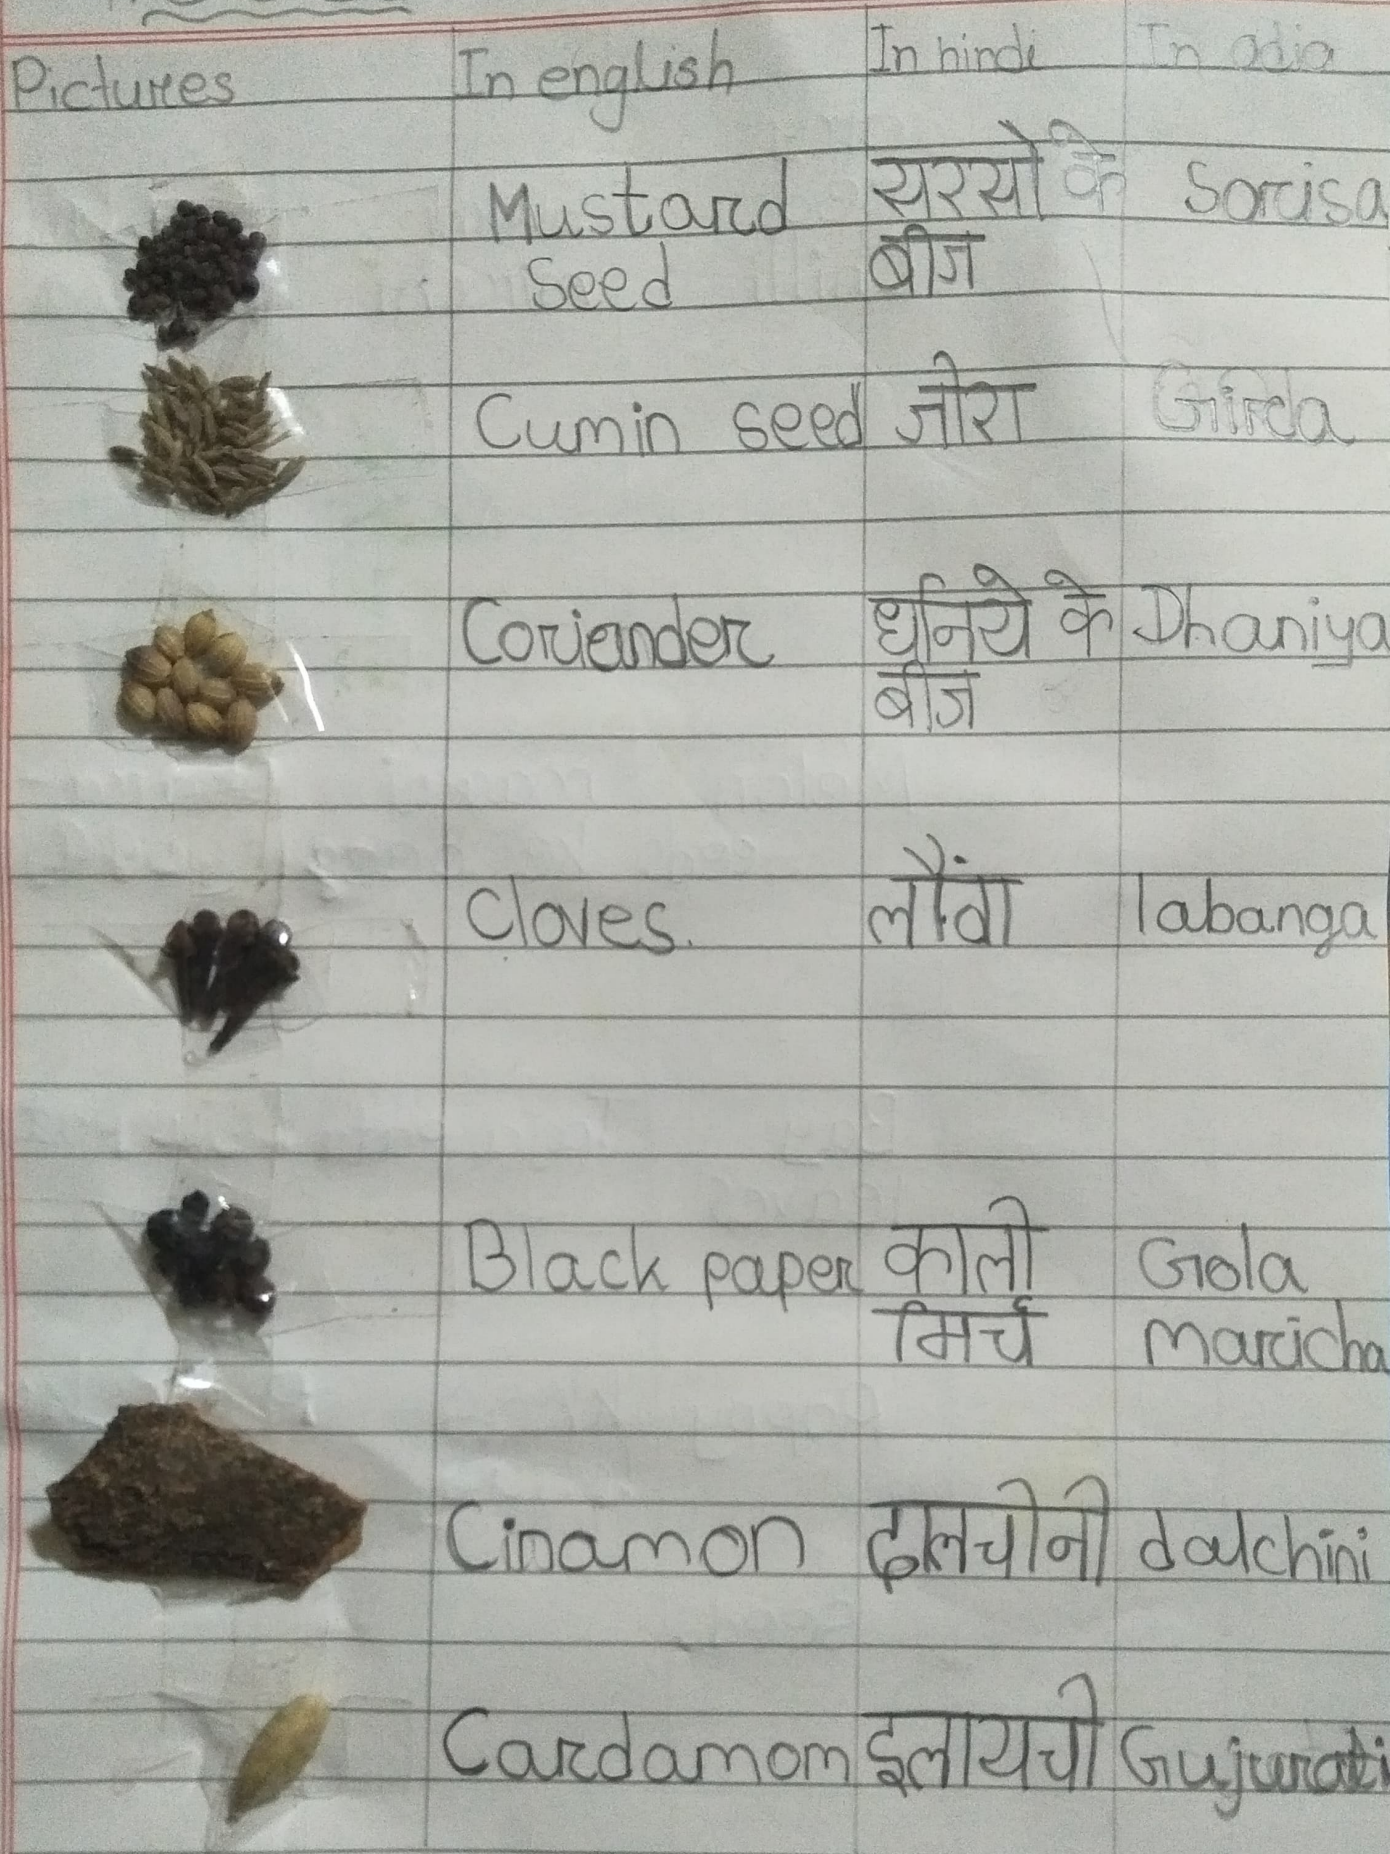 Pictures In english In hindi In odia
Mustard सरसों के Sorisa
Seed बीज
Cumin seed जीरा Girda
Coriander धनिये के Dhaniya
बीज
Cloves. लौंग labanga
Black paper काली Gola
मिर्च maricha
Cinamon दालचीनी dalchini
Cardamom इलायची Gujurati